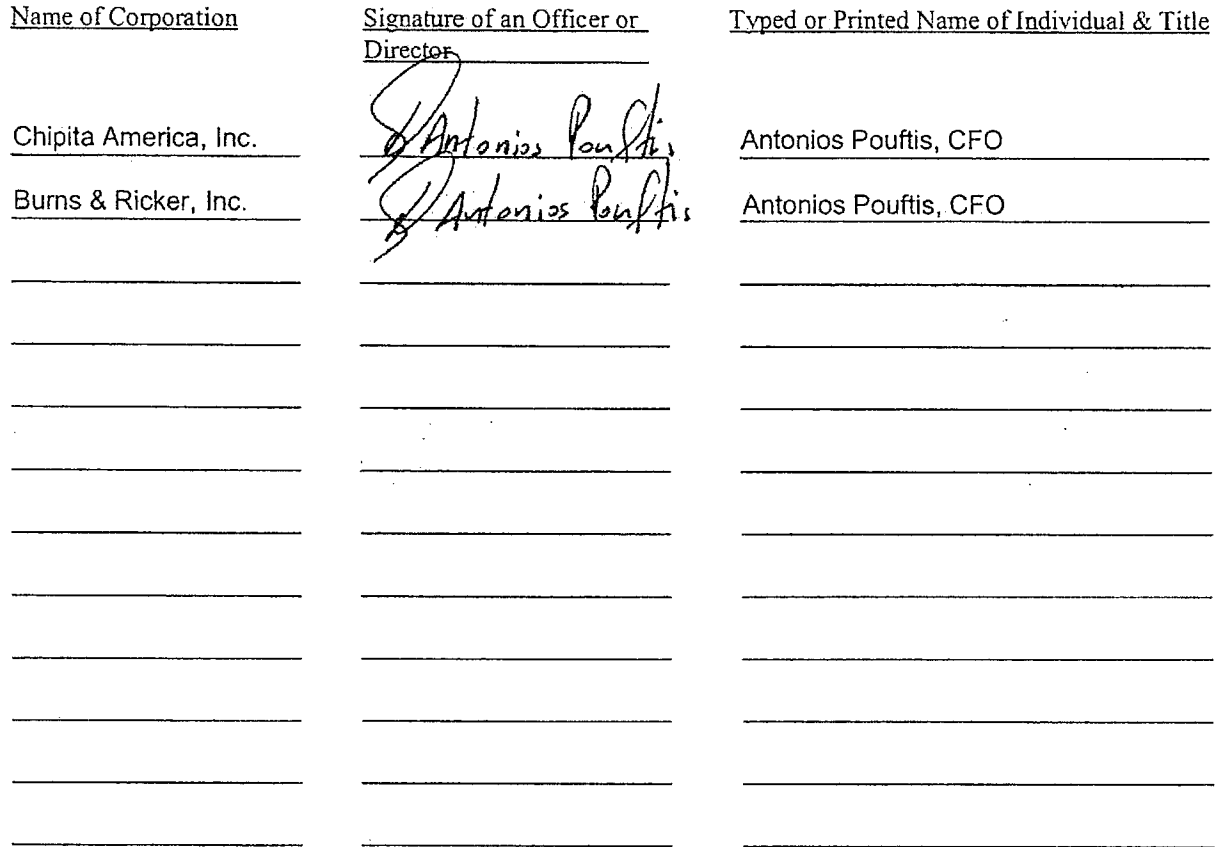 Name of Corporation Signature of an Officer or Typed or Printed Name of Individual & Title
Director
Chipita America, Inc. Antonios Pouftis Antonios Pouftis, CFO
Burns & Ricker, Inc. Antonios Pouftis Antonios Pouftis, CFO